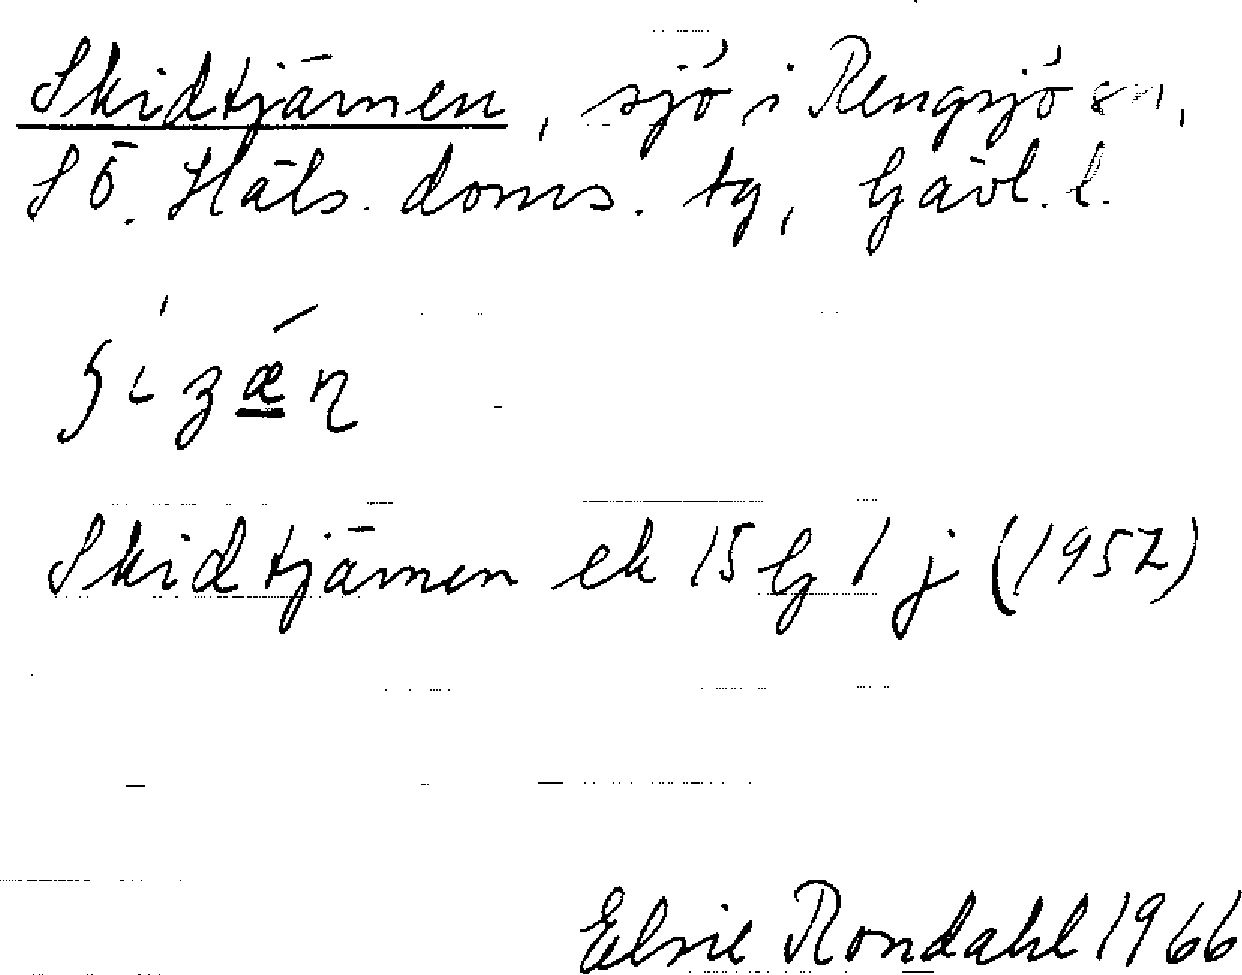 Skidtjärnen, sjö i Rengsjö sn,
SÖ. Häls. doms. tg, Gävl. l.
Skidtjärnen ek 15 G 1 j (1957)
Elsie Rondahl 1966